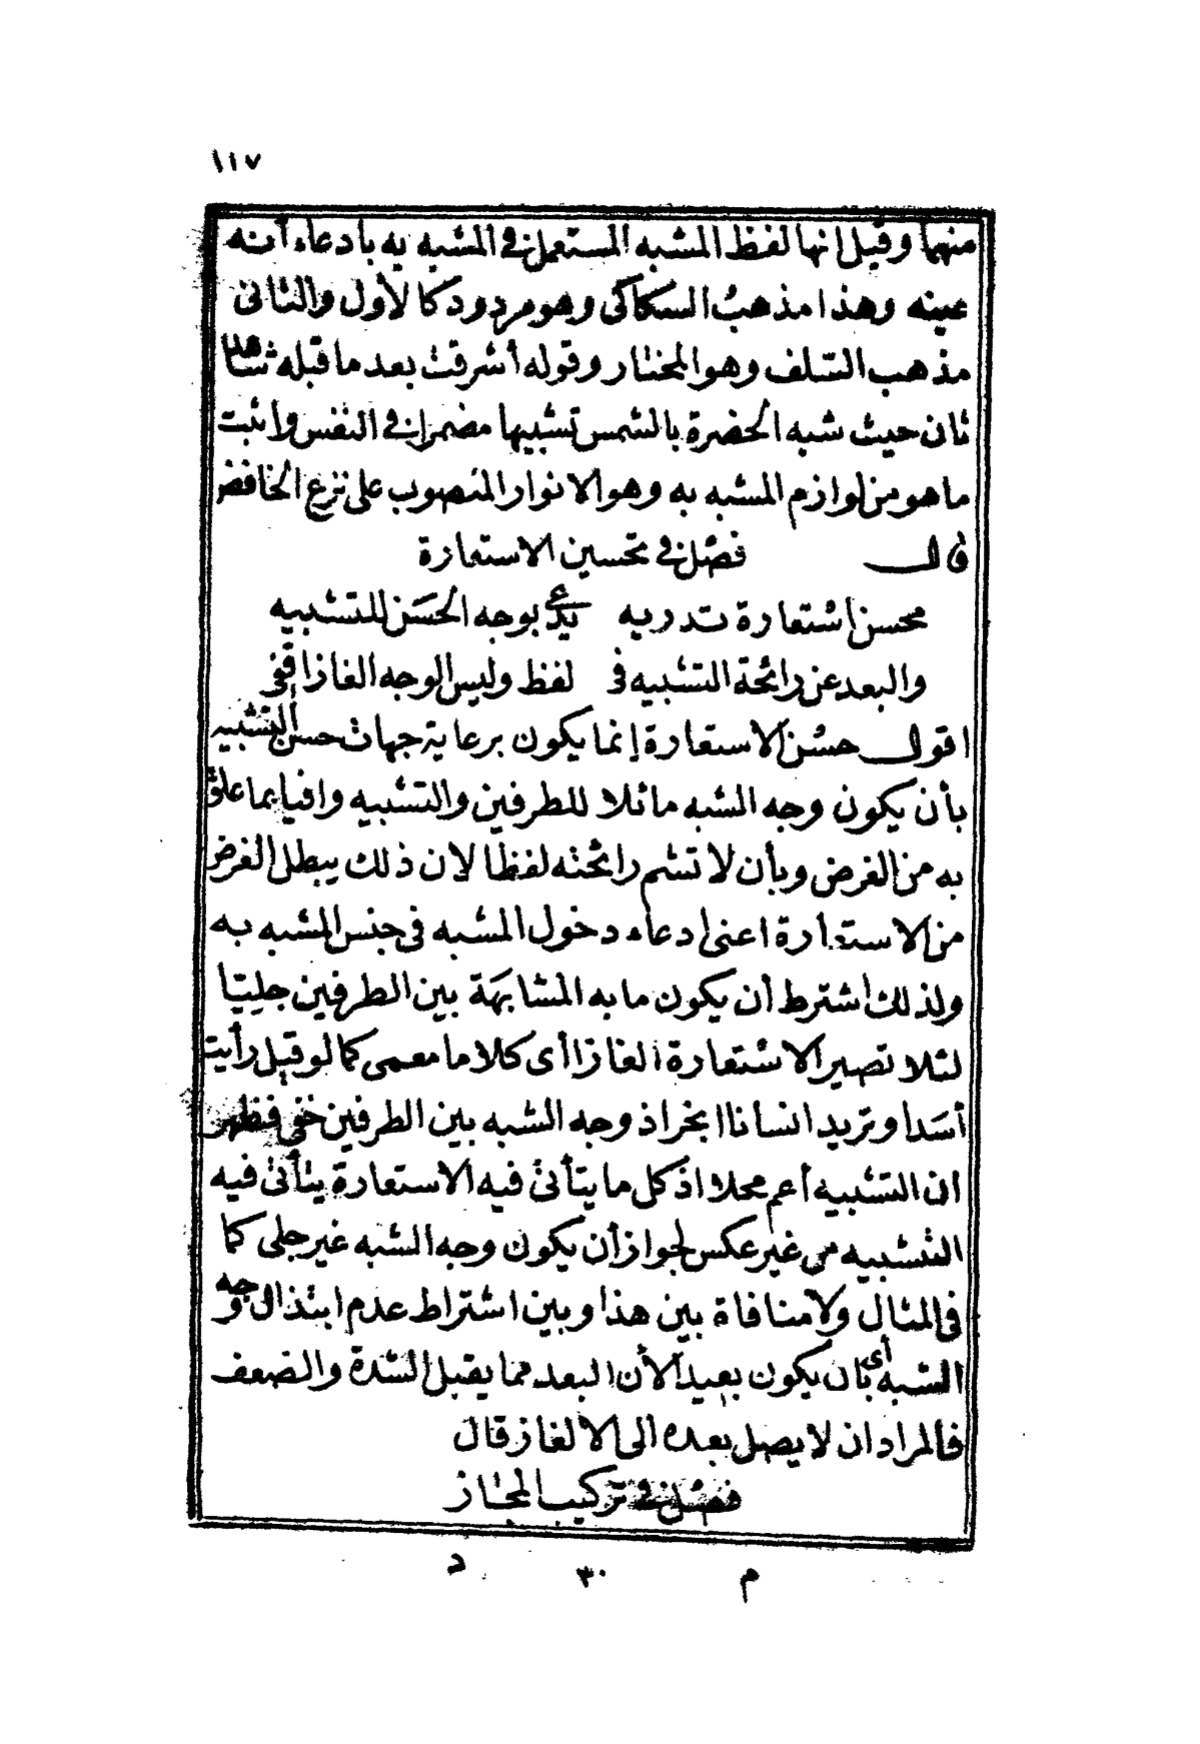 ١١٧
منهما وقيل انها لفظ المشبه المستعمل في المشبه به بادعاء أنه
عينه وهذا مذهب السكاكى وهو مردود كالأول والثانى
مذهب السلف وهو المختار وقوله أشرقت بعد ما قبله شاهد
ثان حيث شبه الحضرة بالشمس تشبيها مضمرا في النفس واثبت
ما هو من لوازم المشبه به وهو الانوار المنصوب على نزع الخافض
قال فصل في تحسين الاستعارة
محسن استعارة تدريه يدعى بوجه الحسن للتشبيه
والبعد عن رائحة التشبيه في لفظ وليس الوجه الغازا قفى
اقول حسن الاستعارة إنما يكون برعاية جهات حسن التشبيه
بأن يكون وجه الشبه مائلا للطرفين والتشبيه وافيا بما علق
به من الغرض وبأن لا تشم رائحته لفظا لان ذلك يبطل الغرض
من الاستعارة اعنى ادعاء دخول المشبه في جنس المشبه به
ولذلك اشترط أن يكون ما به المشابهة بين الطرفين جليّا
لئلا تصير الاستعارة الغازا أى كلاما معمى كما لو قيل رأيت
أسدا وتريد انسانا ابخر اذ وجه الشبه بين الطرفين خفى فظهر
ان التشبيه أعم محلا اذ كل ما يتأتى فيه الاستعارة يتأتى فيه
التشبيه من غير عكس لجواز أن يكون وجه الشبه غير جلى كما
في المثال ولا منافاة بين هذا وبين اشتراط عدم ابتذال وجه
الشبه أى بان يكون بعيدا لأن البعد مما يقبل الشدة والضعف
فالمراد ان لا يصل بعده الى الالغاز قال
فصل في تركيب المجاز
م ٣٠ د